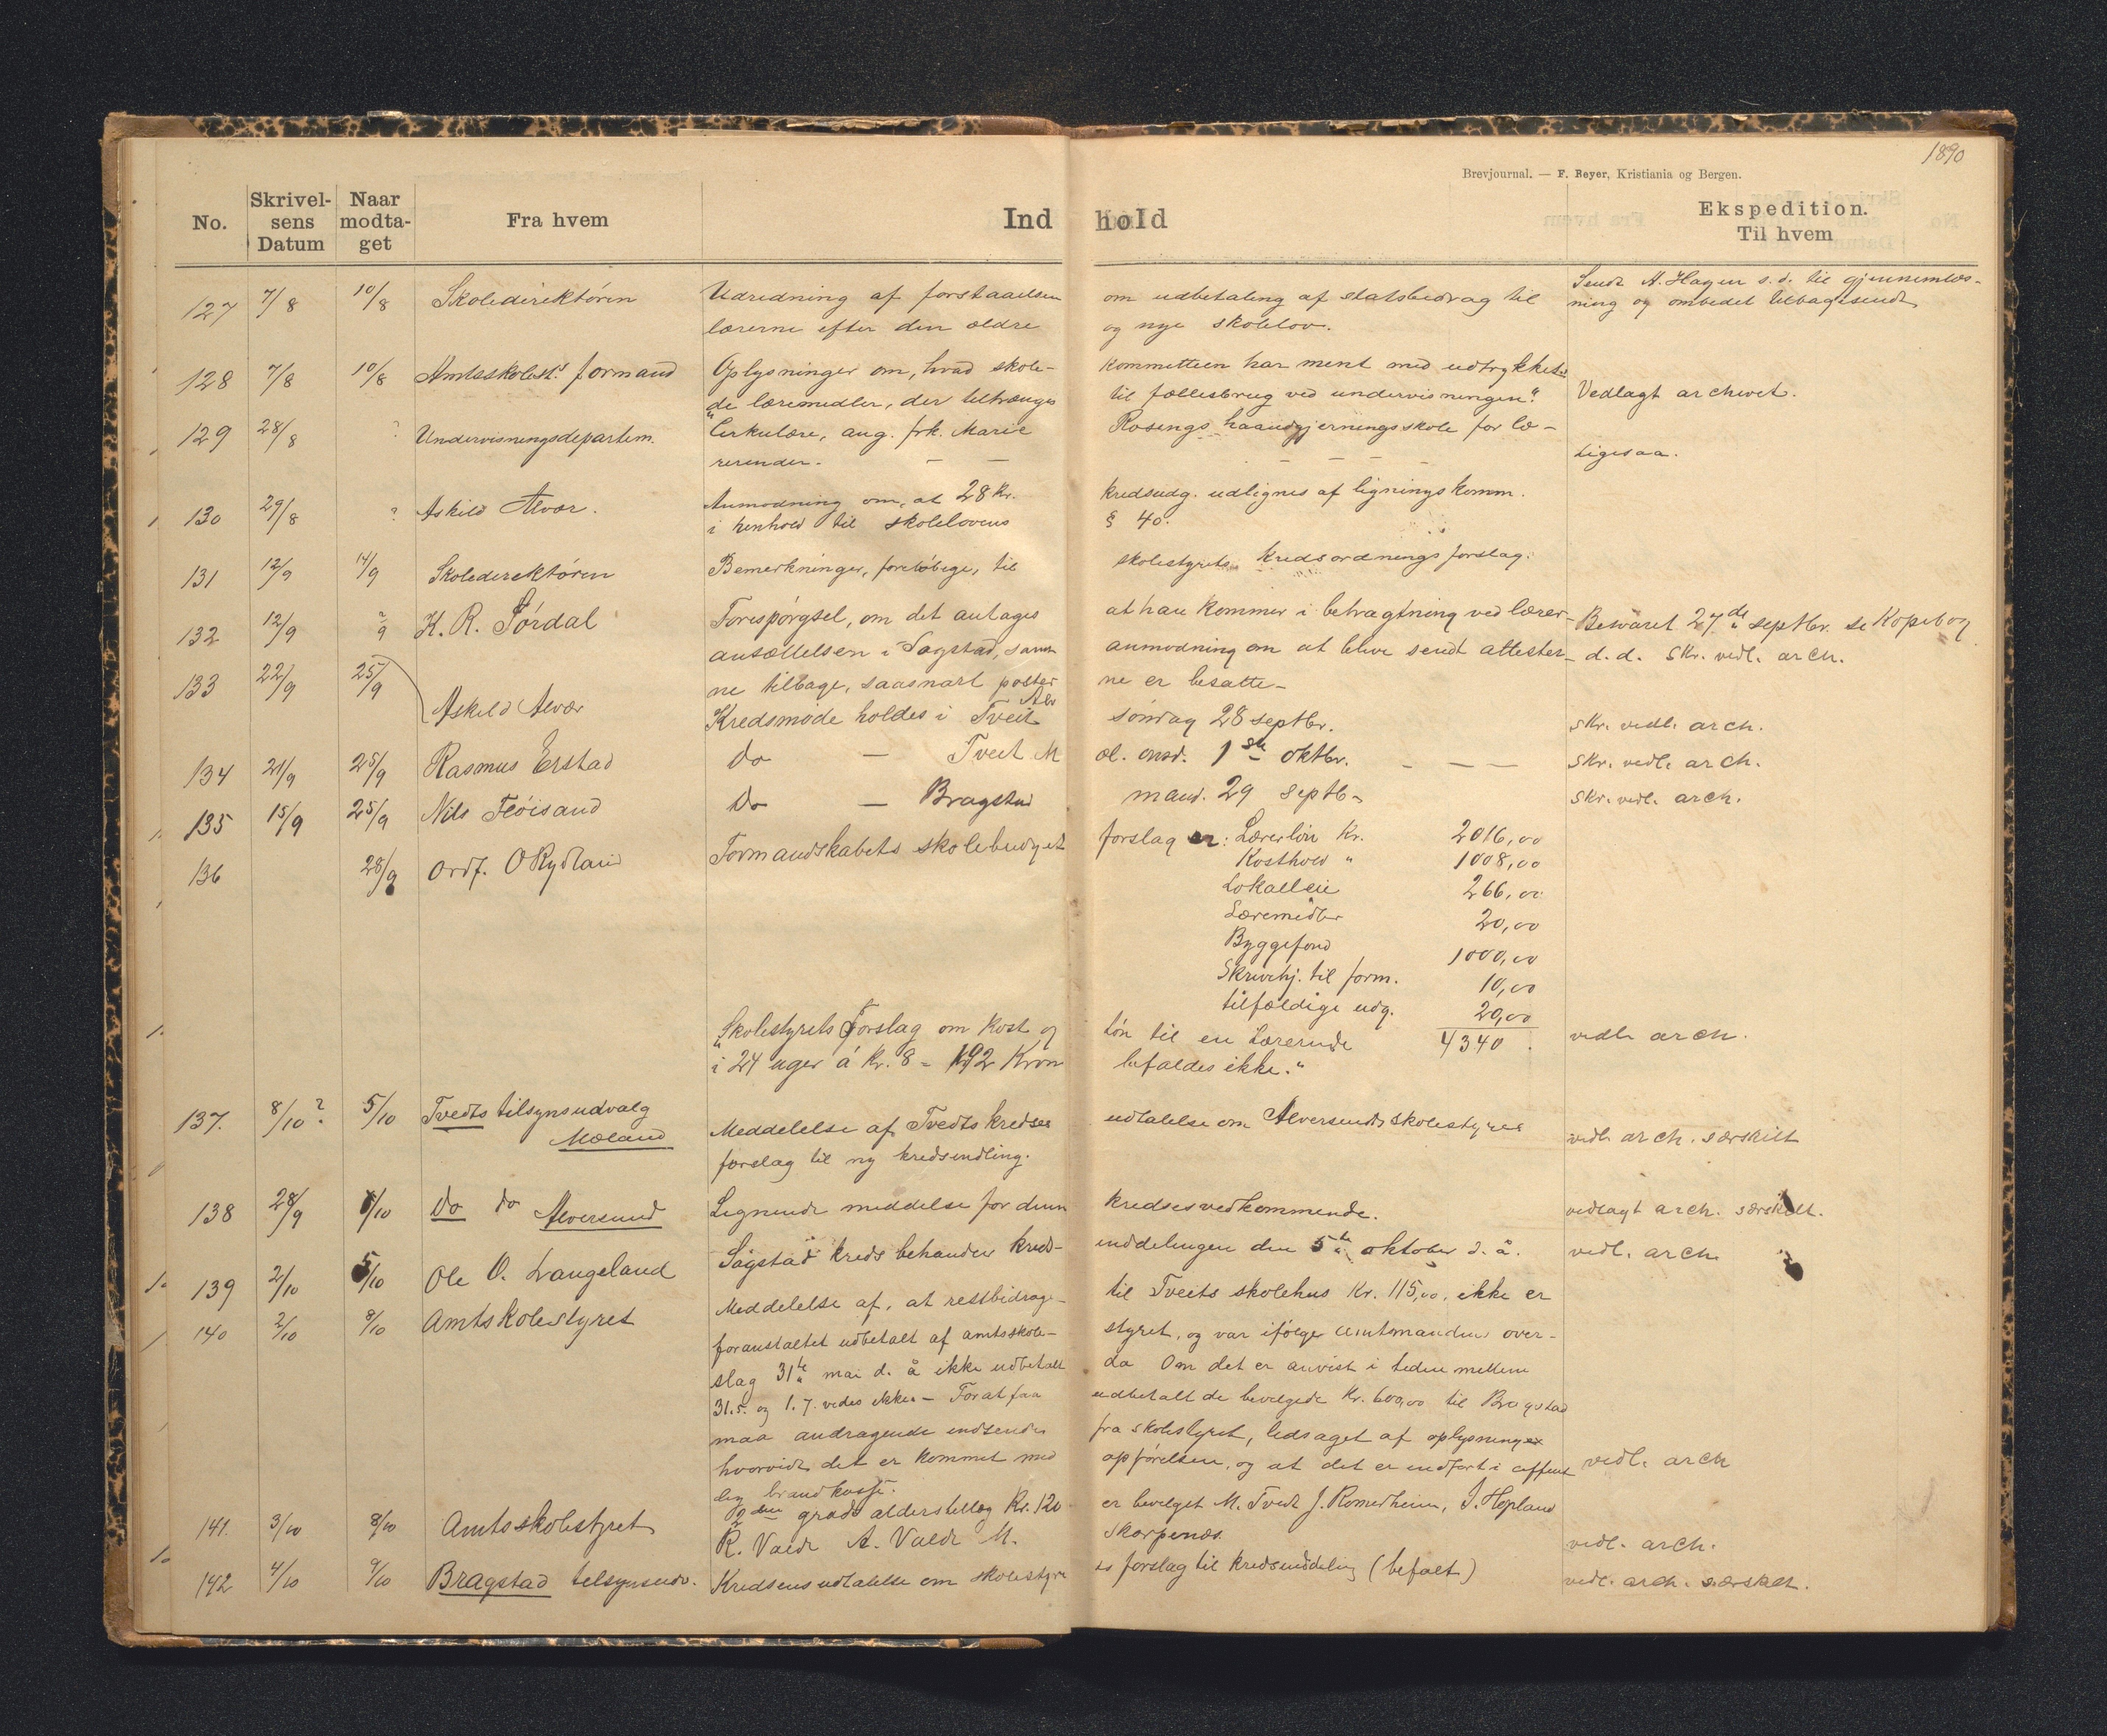 1890
Brevjournal. — F. Beyer, Kristiania og Bergen.
No. Skrivelsens Datum Naar modtaget Fra hvem Ind hold Ekspedition. Til hvem
127 7/8 10/8 Skoledirektøren Udredning af forstaaelsen om udbetaling af statsbidrag til Sendt A. Hagen s. d. til gjennemlæs-
lærerne efter den ældre og nye skolelov. ning og ombedet tilbagesendt
128 7/8 10/8 Amtsskolest.s formand Oplysninger om, hvad skole- kommitteen har ment med udtrykket
de læremidler, der tiltrænges til fællesbrug ved undervisningen". Vedlagt archivet.
129 28/8 ? Undervisningsdepartem. Cirkulære, ang. frk. Marie Rosings haandgjerningsskole for læ-
rerinder. — — Ligesaa.
130 29/8 ? Askild Alvær. Anmodning om, at 28 Kr. kredsudg. udlignes af ligningskomm.
i henhold til skolelovens § 40.
131 12/9 14/9 Skoledirektøren Bemerkninger, foreløbige, til skolestyrets kredsordningsforslag.
132 12/9 ?/9 K. R. Sørdal Forespørgsel, om det antages at han kommer i betragtning ved lærer- Besvaret 27de septbr. se Kopibog
ansættelsen i Sagstad, samt anmodning om at blive sendt attester- d. d. Skr. vedl. arch.
133 22/9 25/9 ne tilbage, saasnart poster ne er besatte—
Askild Alvær Kredsmøde holdes i Tveit Alv søndag 28 septbr. skr. vedl. arch.
134 21/9 25/9 Rasmus Erstad do — Tveit M æl. onsd. 1ste oktbr. — — — skr. vedl. arch.
135 15/9 25/9 Nils Fløisand do — Bragstad mand. 29 septb— skr. vedl. arch.
136 28/9 Ordf. O Rydland Formandskabets skolebudget forslag er: Lærerløn Kr. 2016,00
Kosthold " 1008,00
Lokalleie 266,00
Læremidler 20,00
Byggefond 1000,00
Skrivehj. til form. 10,00
tilfældige udg. 20,00
"Skolestyrets Forslag om kost og løn til en Lærerinde 4340. vedl. arch.
i 24 uger á Kr. 8 = 192 Kron befaldes ikke."
137. 8/10? 5/10 Tvedts tilsynsudvalg Meddelelse af Tvedts kredses udtalelse om Alversunds skolestyres vedl. arch. særskilt
Mæland forslag til ny kredsindling.
138 28/9 6/10 Do do Alversund Lignende meddelse for denn kredses vedkommende. vedlagt arch. særskilt.
139 2/10 5/10 Ole O. Langeland Sagstad kreds behandler kreds- inddelingen den 5te oktober d. å. vedl. arch.
140 2/10 8/10 Amtskolestyret Meddelelse af, at restbidrage- til Tveits skolehus Kr. 115,00, ikke er
foranstaltet udbetalt af amtsskole- styret, og var ifølge amtmandens over-
slag 31te mai d. å ikke udbetalt da Om det er anvist i tiden mellem
31.5. og 1.7. vides ikke. — Forat faa udbetalt de bevilgede Kr. 600,00 til Bragstad
maa andragende indsendes fra skolestyret, ledsaget af oplysninger
hvorvidt det er kommet med opførelsen, og at det er indført i offent vedl. arch
lig brandkasse.
141. 3/10 8/10 Amtsskolestyret 2den grads alderstillæg Kr. 120 er bevilget M. Tvedt J. Romerheim, I. Hopland
R. Valde A. Valde M. Skarpenæs. vedl. arch.
142 4/10 9/10 Bragstad tilsynsudv. Kredsens udtalelse om skolestyre ts forslag til kredsinddeling (befalt) vedl. arch. særskilt.